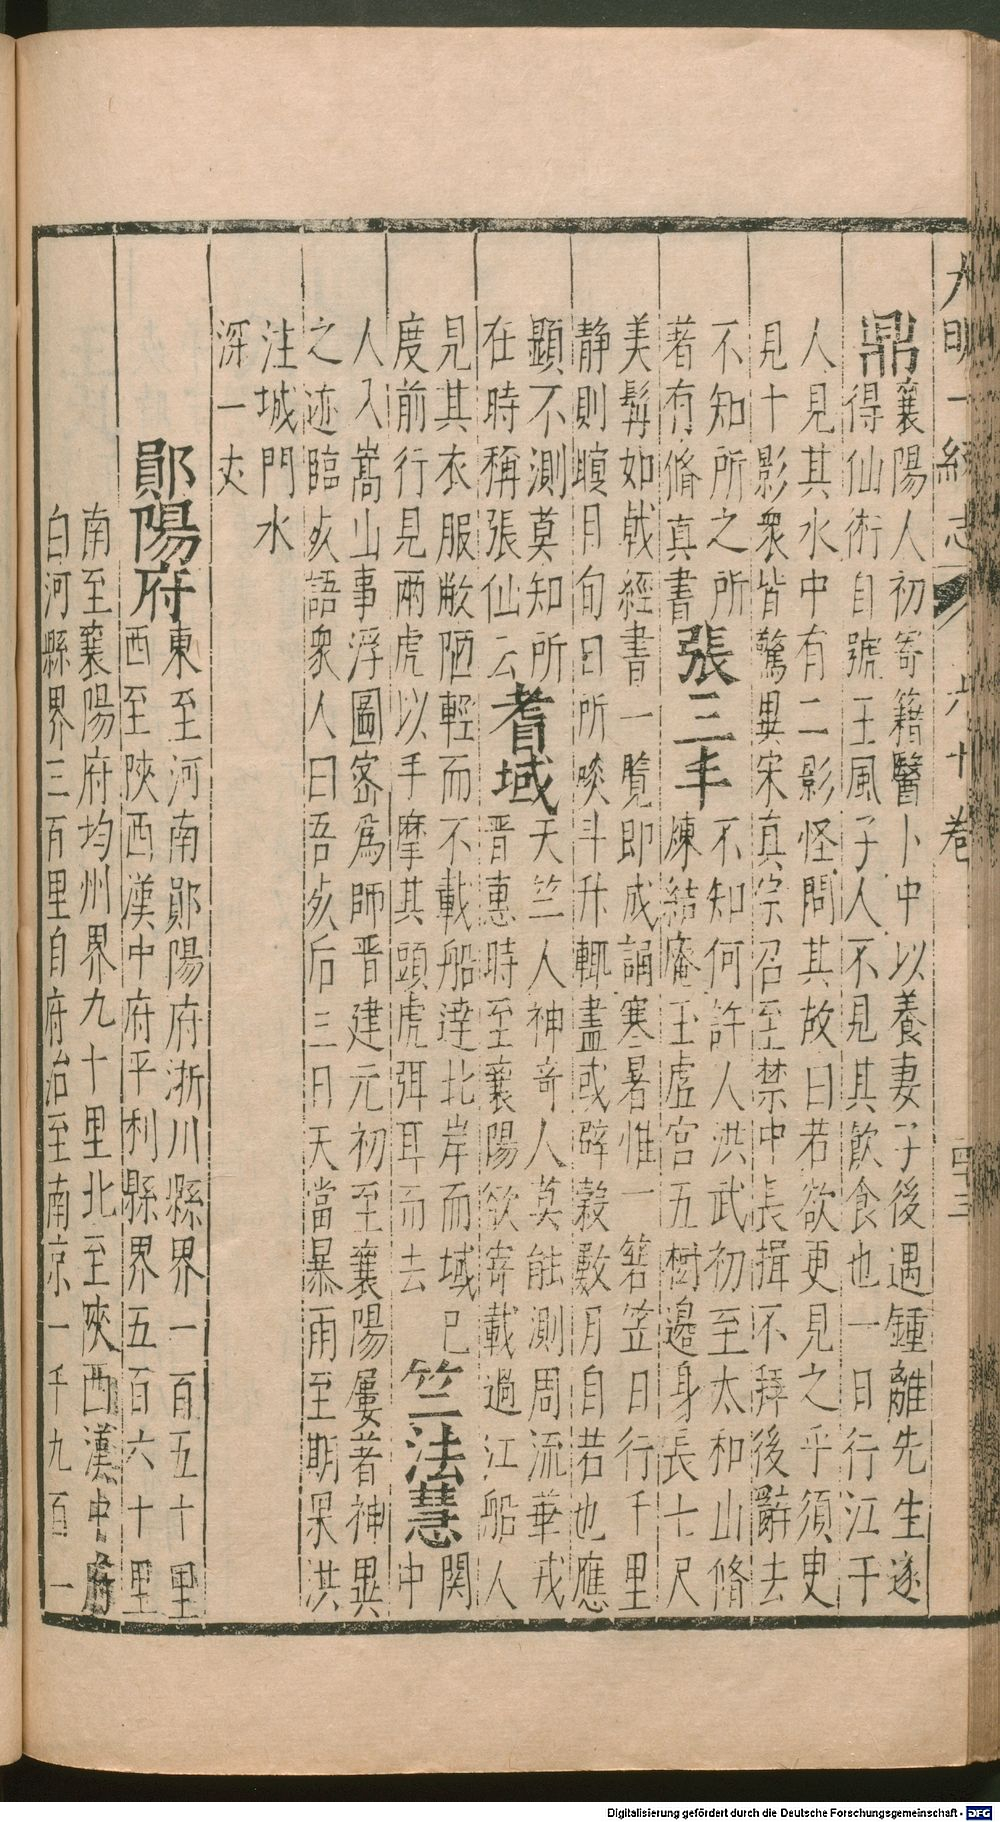 大明一統志 六十卷 四十三
鼎 襄陽人初寄籍醫卜中以養妻子後遇鍾離先生遂
得仙術自號王風子人不見其飲食也一日行江于
人見其水中有二影怪問其故曰若欲更見之乎須臾
見十影衆皆驚異宋真宗召至禁中長揖不拜後辭去
不知所之所
著有脩真書 張三丰 不知何許人洪武初至太和山脩
煉結庵玉虛宮五樹邉身長七尺
美髯如戟經書一覽即成誦寒暑惟一箬笠日行千里
静則瞑目旬日所啖斗升輒盡或辟穀數月自若也應
顯不測莫知所
在時稱張仙云 耆域 天竺人神竒人莫能測周流華戎
晋惠時至襄陽欲寄載過江船人
見其衣服敝陋輕而不載船達北岸而域已
度前行見兩虎以手摩其頭虎弭耳而去 竺法慧 関中
人入嵩山事浮圖宻爲師晋建元初至襄陽屢著神異
之迹臨死語衆人曰吾死后三日天當暴雨至期果洪
注城門水
深一丈
鄖陽府 東至河南鄖陽府浙川縣界一百五十里
西至陝西漢中府平利縣界五百六十里
南至襄陽府均州界九十里北至陝西漢中府
白河縣界三百里自府治至南京一千九百一
Digitalisierung gefördert durch die Deutsche Forschungsgemeinschaft - DFG